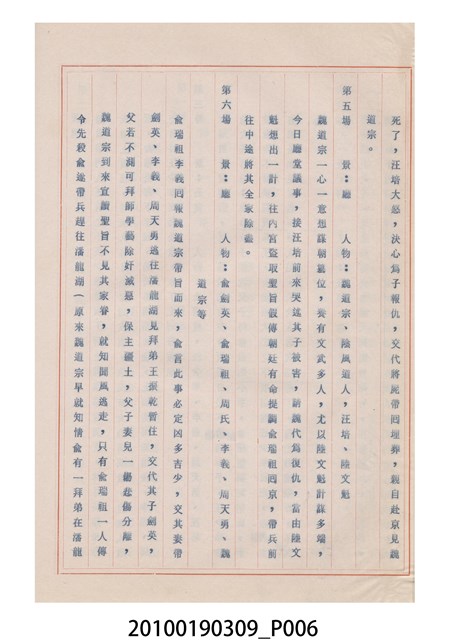 死了，汪培大怒，決心為子報仇，交代將屍帶回埋葬，親自赴京見魏
道宗。
第五場　景：廳　人物：魏道宗、陰風道人，汪培、陸文魁
魏道宗一心一意想謀朝篡位，養有文武多人，尤以陸文魁計謀多端，
今日廳堂議事，接汪培前來哭述其子被害，請魏代為復仇，當由陸文
魁想出一計，往內宮盜取聖旨假傳朝廷有命提調俞瑞祖回京，帶兵前
往中途將其全家除盡。
第六場　景：廳　人物：俞劍英、俞瑞祖、周氏、李義、周天勇、魏
道宗等
俞瑞祖李義回報魏道宗帶旨而來，俞言此事必定凶多吉少，交其妻帶
劍英、李義、周天勇逃往潘龍湖見拜弟王振乾暫住，交代其子劍英，
父若不測可拜師學藝除奸滅惡，保主疆土，父子妻兒一場悲傷分離，
魏道宗到來宣讀聖旨不見其家眷，就知聞風逃走，只有俞瑞祖一人傳
令先殺俞後帶兵趕往潘龍湖（原來魏道宗早就知情俞有一拜弟在潘龍
20100190309_P006